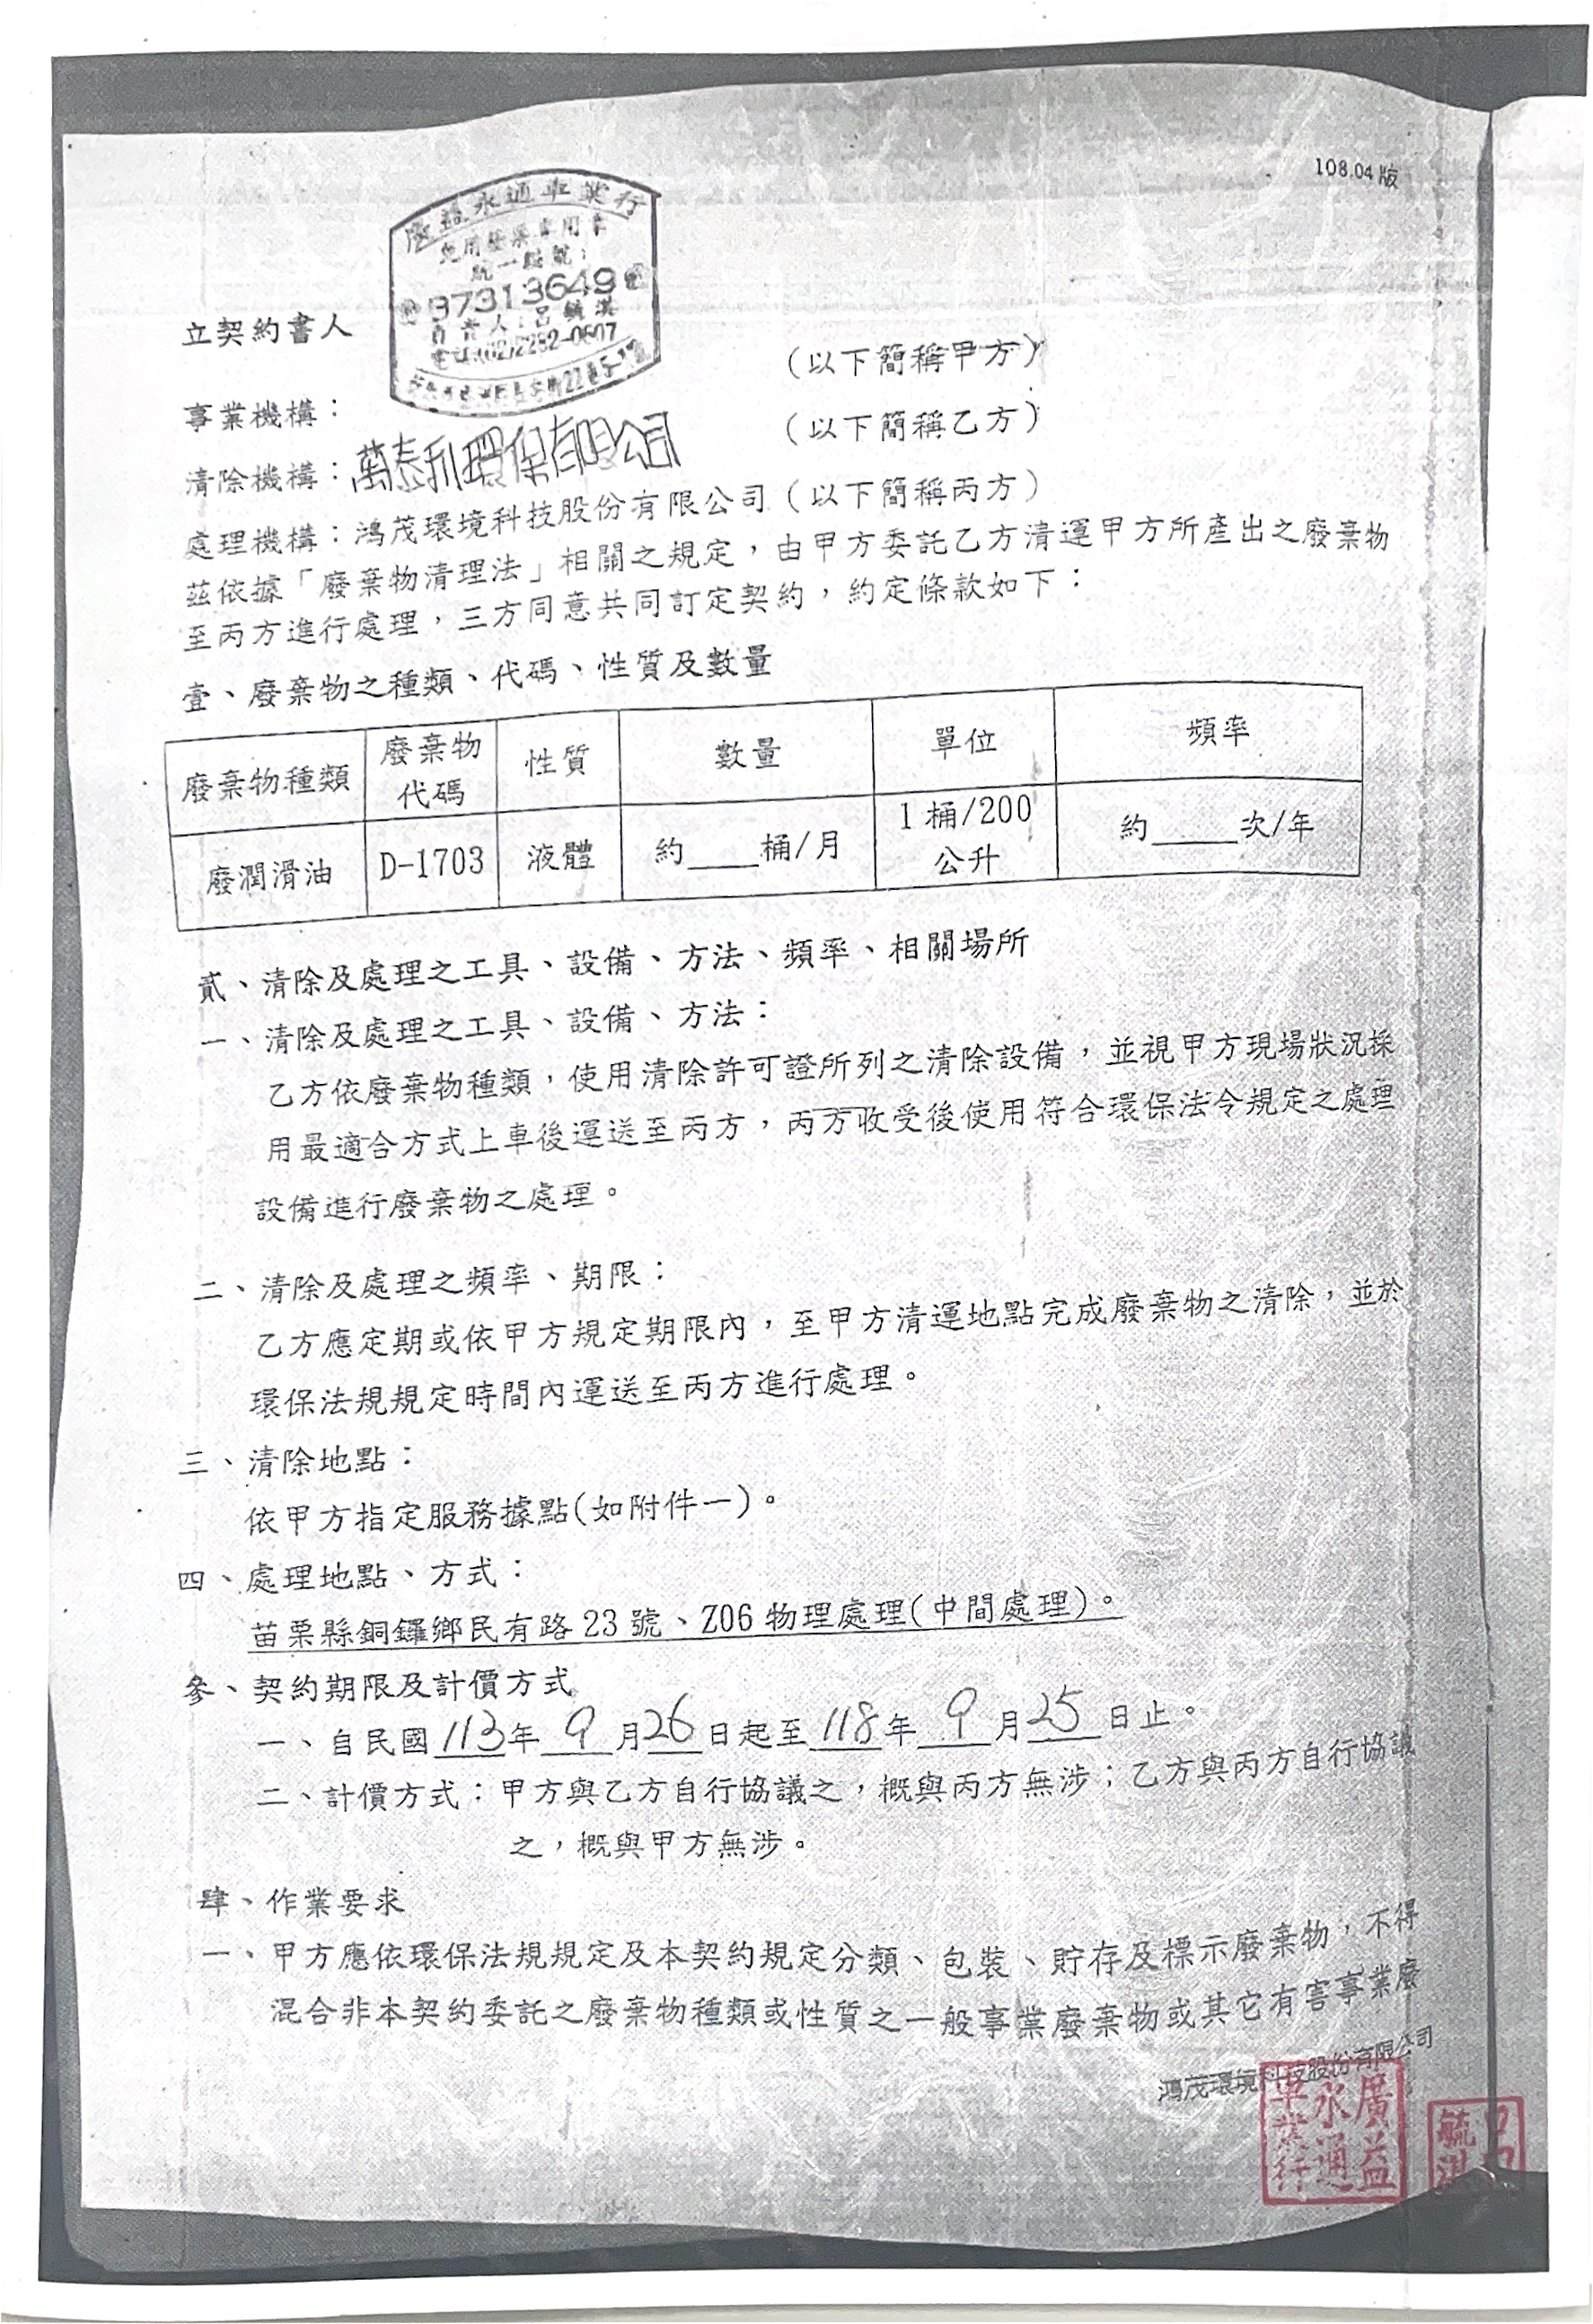 108.04版
廣益永通車業行
免用發票專用章
統一編號:
37313649
負責人:呂毓淇
電話:(02)2282-0607
立契約書人
(以下簡稱甲方)
事業機構:
(以下簡稱乙方)
清除機構:萬泰利環保有限公司
處理機構:鴻茂環境科技股份有限公司(以下簡稱丙方)
茲依據「廢棄物清理法」相關之規定,由甲方委託乙方清運甲方所產出之廢棄物
至丙方進行處理,三方同意共同訂定契約,約定條款如下:
壹、廢棄物之種類、代碼、性質及數量
廢棄物種類 廢棄物代碼 性質 數量 單位 頻率
廢潤滑油 D-1703 液體 約____桶/月 1桶/200公升 約_____次/年
貳、清除及處理之工具、設備、方法、頻率、相關場所
一、清除及處理之工具、設備、方法:
乙方依廢棄物種類,使用清除許可證所列之清除設備,並視甲方現場狀況採
用最適合方式上車後運送至丙方,丙方收受後使用符合環保法令規定之處理
設備進行廢棄物之處理。
二、清除及處理之頻率、期限:
乙方應定期或依甲方規定期限內,至甲方清運地點完成廢棄物之清除,並於
環保法規規定時間內運送至丙方進行處理。
三、清除地點:
依甲方指定服務據點(如附件一)。
四、處理地點、方式:
苗栗縣銅鑼鄉民有路23號、Z06物理處理(中間處理)。
參、契約期限及計價方式
一、自民國113年9月26日起至118年9月25日止。
二、計價方式:甲方與乙方自行協議之,概與丙方無涉;乙方與丙方自行協議
之,概與甲方無涉。
肆、作業要求
一、甲方應依環保法規規定及本契約規定分類、包裝、貯存及標示廢棄物,不得
混合非本契約委託之廢棄物種類或性質之一般事業廢棄物或其它有害事業廢
鴻茂環境科技股份有限公司
廣益永通車業行
呂毓淇